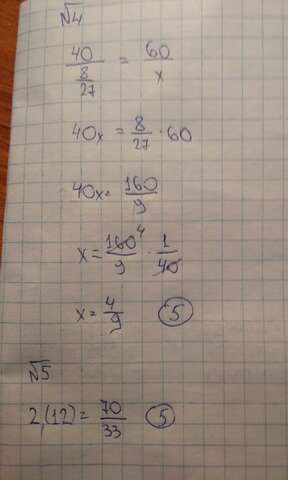 №4
40/(8/27) = 60/x
40x = 8/27 · 60
40x = 160/9
x = 160⁴/9 · 1/40
x = 4/9 ⑤
№5
2,(12) = 70/33 ⑤